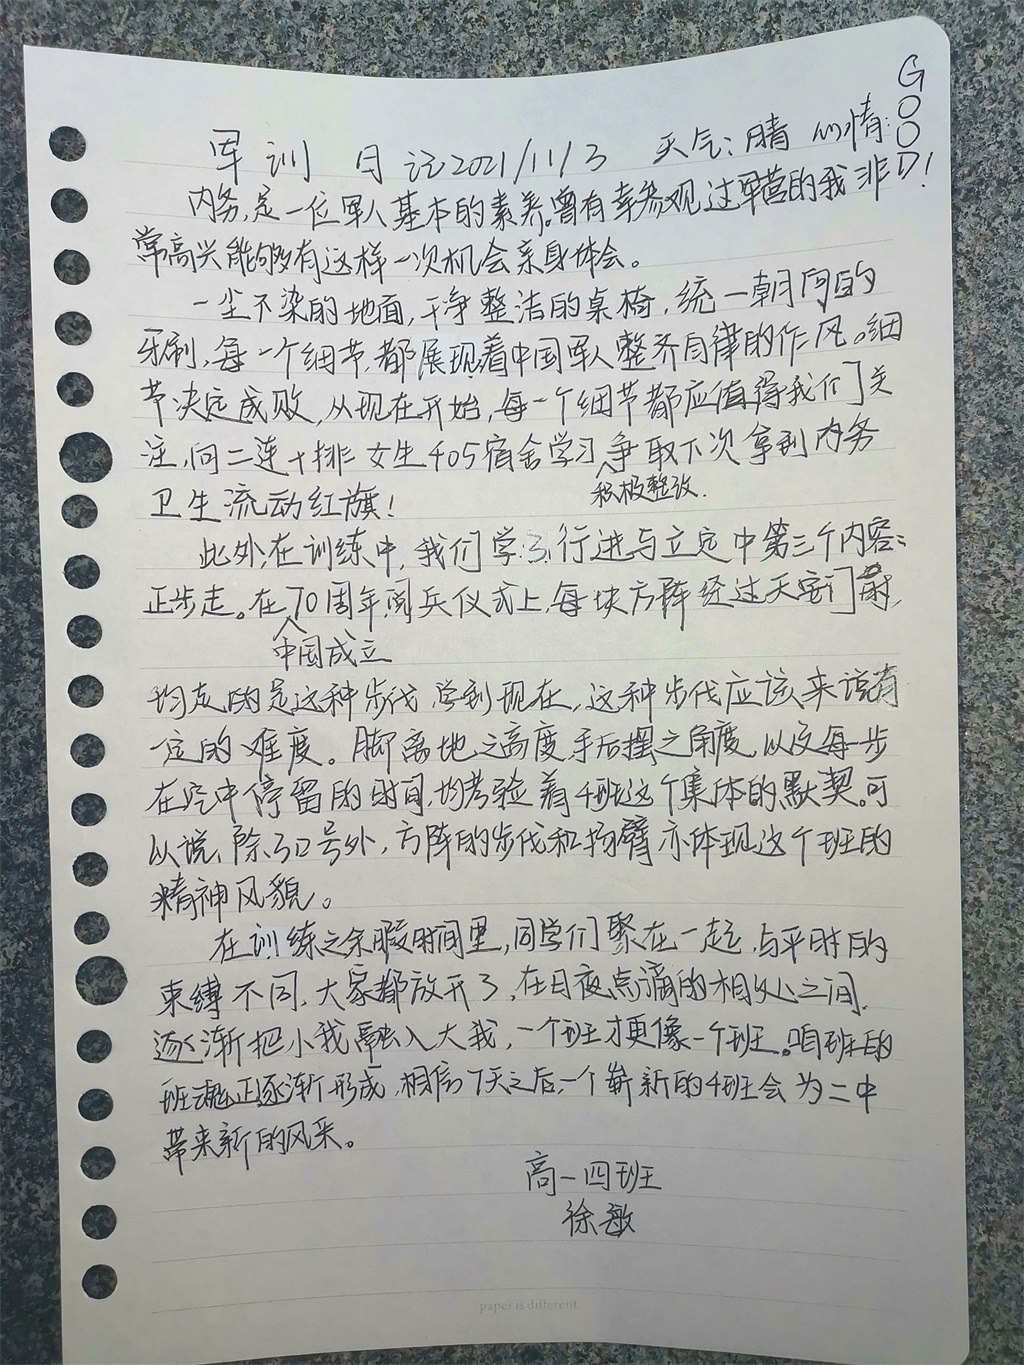 军训 日记2021/11/3 天气:晴 心情:GOOD!
内务,是一位军人基本的素养。曾有幸参观过军营的我非
常高兴能够有这样一次机会亲身体会。
一尘不染的地面,干净整洁的桌椅,统一朝向的
牙刷,每一个细节,都展现着中国军人整齐自律的作风。细
节决定成败,从现在开始,每一个细节都应值得我们关
注,向二连十排女生405宿舍学习,争取下次拿到内务
积极整改.
卫生流动红旗!
此外,在训练中,我们学习行进与立定中第三个内容:
正步走。在70周年阅兵仪式上,每块方阵经过天安门前,
中国成立
均走的是这种步伐,学到现在,这种步伐应该来说有
一定的难度。脚离地之高度,手后摆之角度,以及每一步
在空中停留的时间,均考验着4班这个集体的默契。可
以说,除口号外,方阵的步伐和扬臂亦体现这个班的
精神风貌。
在训练之余暇时间里,同学们聚在一起,与平时的
束缚不同,大家都放开了,在日夜点滴的相处之间,
逐渐把小我融入大我,一个班才更像一个班。咱班的
班魂正逐渐形成,相信7天之后,一个崭新的4班会为二中
带来新的风采。
高一四班
徐敏
paper is different